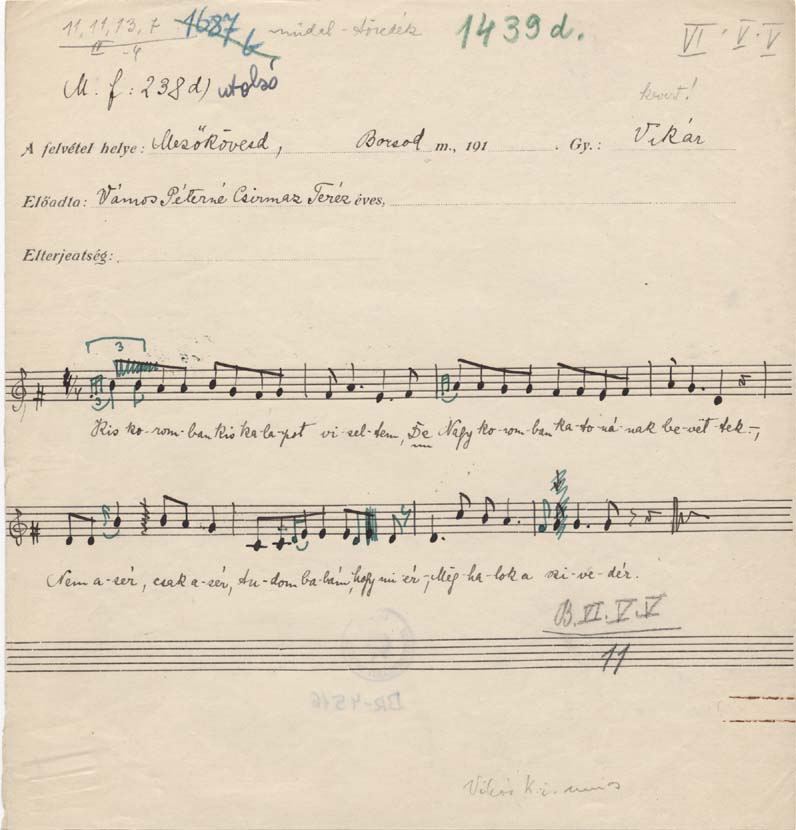 11, 11, 13, 7 1687 műdal-töredék 1439 d. VI. V. V
II -4
M. f: 238 d) utolsó
kevert!
A felvétel helye: Mezőkövesd, Borsod m., 191 . Gy.: Vikár
Előadta: Vámos Péterné Csirmaz Teréz éves,
Elterjeatség:
3
3
Kis ko-rom-ban kis ka-la-pot vi-sel-tem, De Nagy ko-rom-ban ka-to-ná-nak be-vet-tek-,
Nem a-sér, csak a-sér, tu-dom babám, hogy mi ér-, Meg-ha-lok a szi-ve-dér.
B. VI. V. V
11
BR-4516